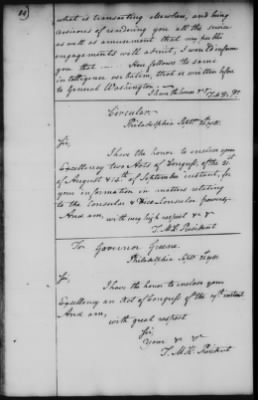 what is transacting elsewhere, and being
desirous of rendering you all the service
as well as amusement that my health &
engagements will admit, I would inform
you that — Here follows the same
intelligence verbatim, that is written before
to General Washington
I have the honor &c
Circular
Philadelphia Septr.
Sir,
I have the honor to enclose your
Excellency two Acts of Congress of the 21st
of August & 14th of September instant, for
your information in matters relating
to the Consular & Vice Consular powers.
And am, with very high respect &c &c
T. M. K. President
To Governor Greene.
Philadelphia Septr.
Sir,
I have the honor to enclose your
Excellency an Act of Congress of the instant
And am,
with great respect
Sir,
Your &c &c
T. M. K. President